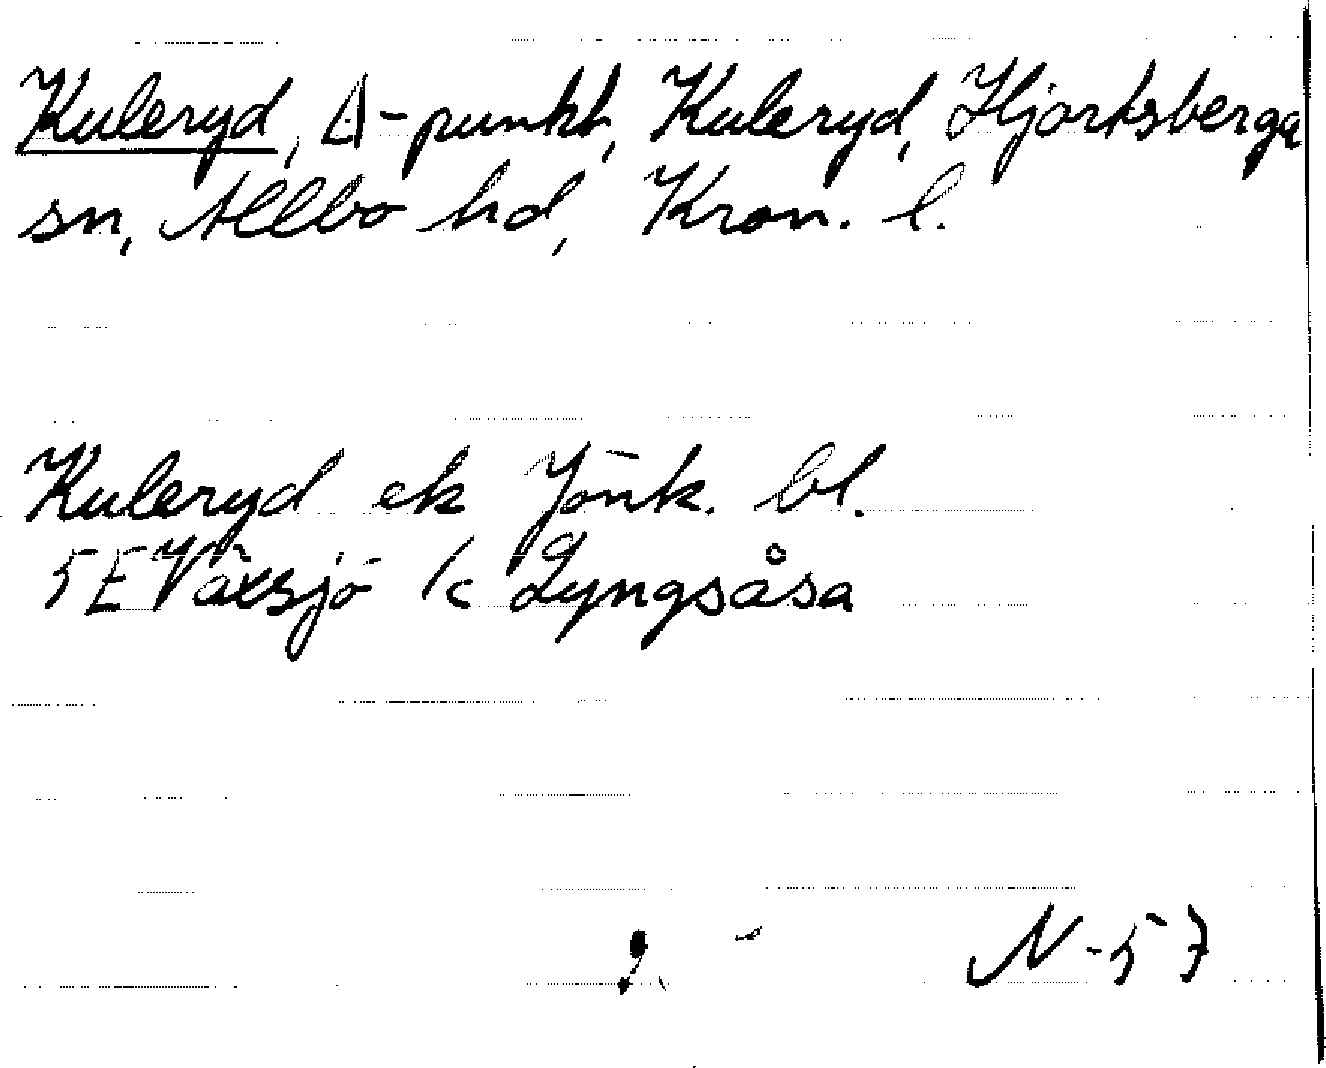 Kuleryd, Δ-punkt, Kuleryd, Hjortsberga
sn, Allbo hd, Kron. l.
Kuleryd ek Jönk. bl.
5E Växsjö /c Lyngsåsa
N-57